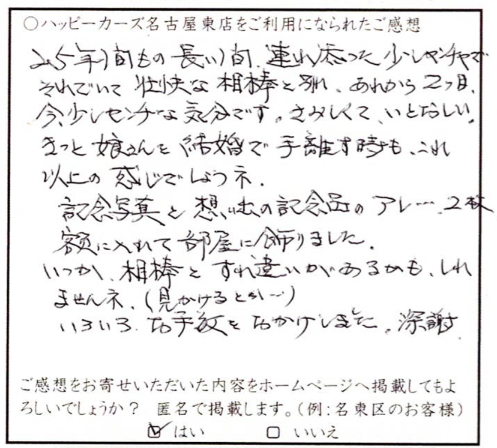 ○ハッピーカーズ名古屋東店をご利用になられたご感想
25年間もの長い間、連れ添った少しヤンチャで
それでいて壮快な相棒と別れ、あれから2ヶ月、
今、少しセンチな気分です。さみしくて、いとおしい。
きっと娘さんを結婚で手離す時も、これ
以上の感じでしょうネ.
記念写真と想い出の記念品のアレ…2枚
額に入れて部屋に飾りました.
いつか、相棒とすれ違いがあるかも、しれ
ませんネ.(見かけるとか〜)
いろいろ、お手数をおかけしました。深謝
ご感想をお寄せいただいた内容をホームページへ掲載してもよ
ろしいでしょうか? 匿名で掲載します。(例:名東区のお客様)
☑ はい □ いいえ